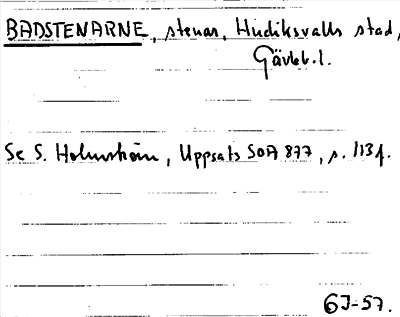 BADSTENARNE, stenar, Hudiksvalls stad,
Gävleb.l.
Se S. Holmström, Uppsats SOA 877, s. 113f.
GJ-57.